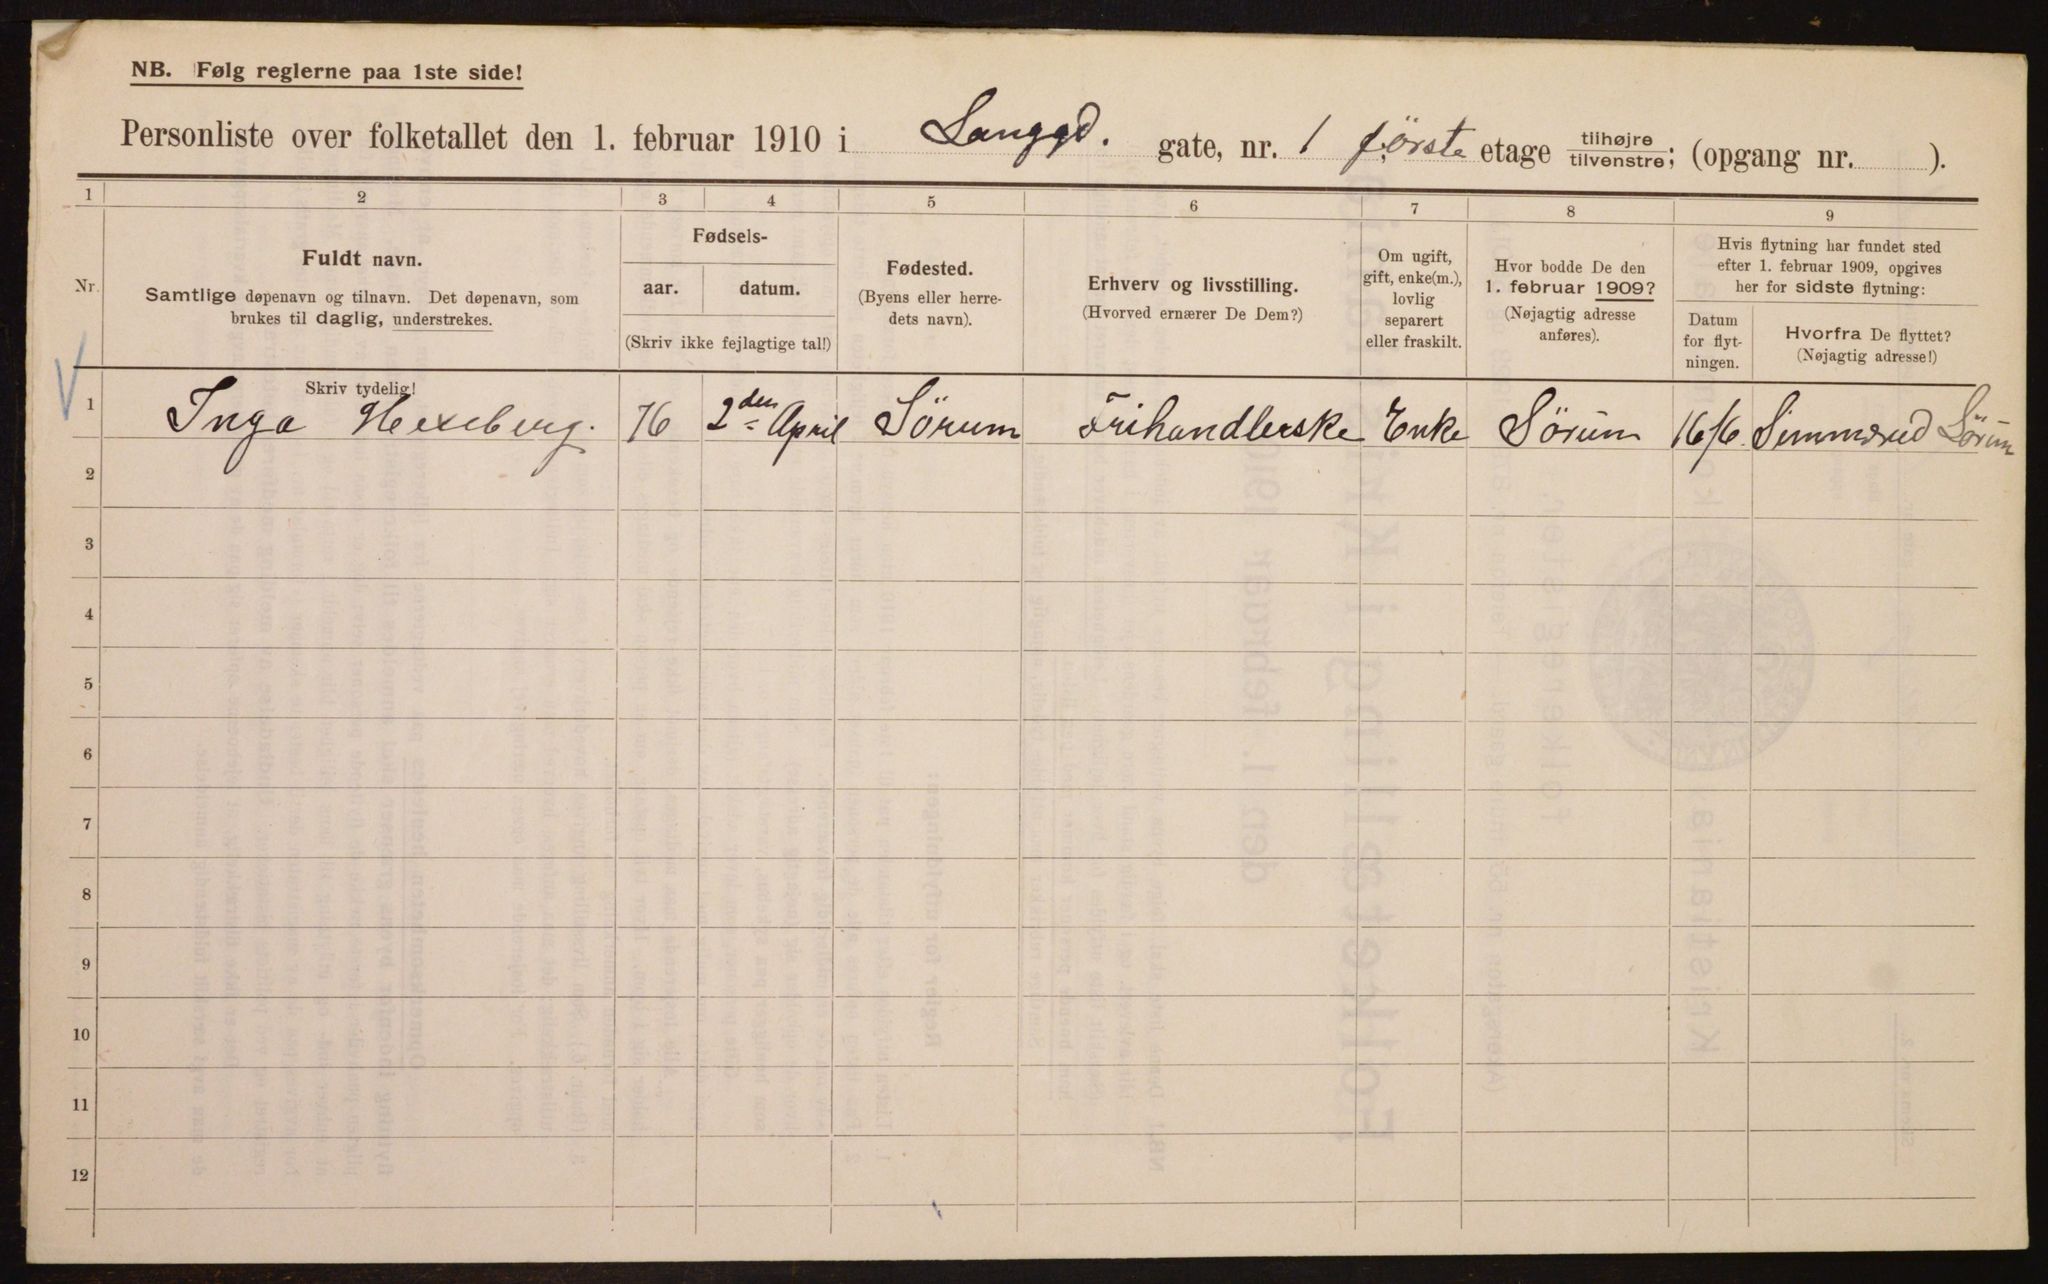 NB. Følg reglerne paa 1ste side!
Personliste over folketallet den 1. februar 1910 i Langgd. gate, nr. 1 første etage tilhøjre tilvenstre; (opgang nr. ).
1 2 3 4 5 6 7 8 9
Nr.
Fuldt navn.
Samtlige døpenavn og tilnavn. Det døpenavn, som
brukes til daglig, understrekes.
Skriv tydelig!
Fødsels-
aar. datum.
(Skriv ikke fejlagtige tal!)
Fødested.
(Byens eller herre-
dets navn).
Erhverv og livsstilling.
(Hvorved ernærer De Dem?)
Om ugift,
gift, enke(m.),
lovlig
separert
eller fraskilt.
Hvor bodde De den
1. februar 1909?
(Nøjagtig adresse
anføres).
Hvis flytning har fundet sted
efter 1. februar 1909, opgives
her for sidste flytning:
Datum
for flyt-
ningen.
Hvorfra De flyttet?
(Nøjagtig adresse!)
1 Inga Hexeberg. 76 2den April Sørum Frihandlerske Enke Sørum 16/6 Simmerud Sørum
2
3
4
5
6
7
8
9
10
11
12